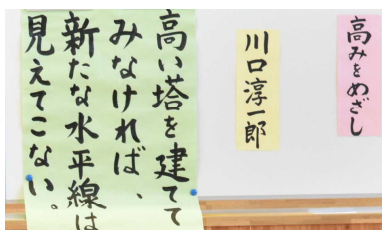 高みをめざし
川口淳一郎
高い塔を建てて
みなければ、
新たな水平線は
見えてこない。